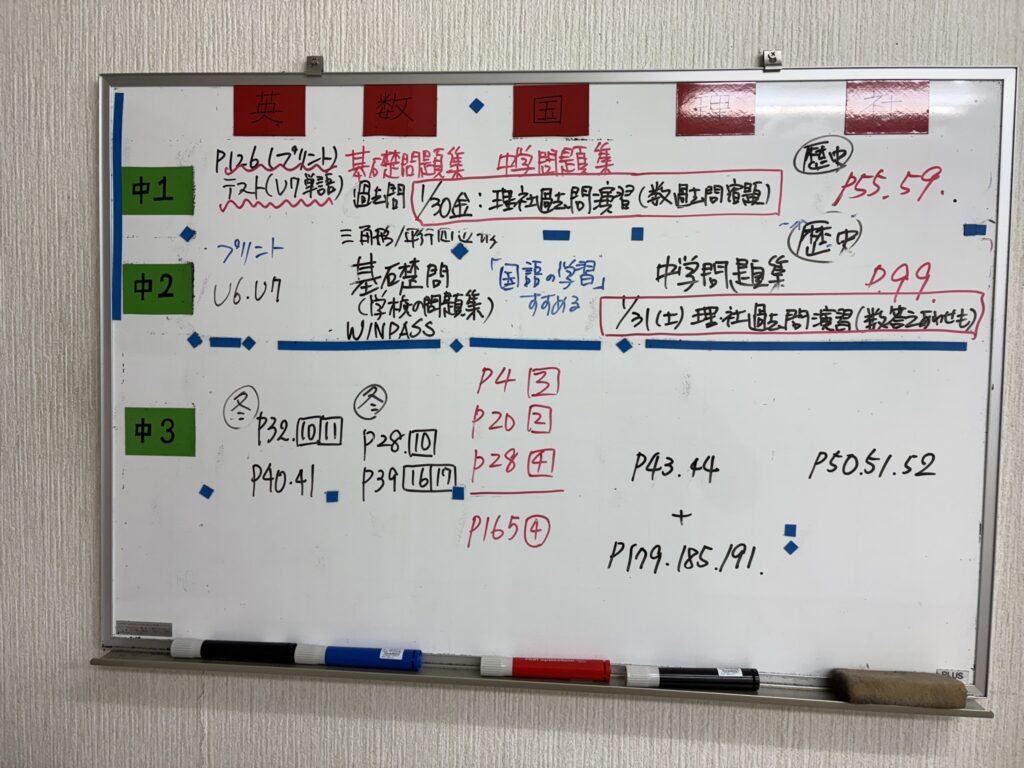 英 数 国 理 社
中1
P126(プリント)
テスト(U7単語)
基礎問題集 中学問題集
過去問
1/30金:理社過去問演習(数過去問宿題)
歴史
P55.59.
中2
プリント
U6.U7
三角形/平行四辺形
基礎問
(学校の問題集)
WINPASS
「国語の学習」
すすめる
中学問題集
歴史
P99.
1/31(土)理・社過去問演習(数答えあわせも)
中3
冬
P32.10 11
P40.41
冬
P28.10
P39 16 17
P4 3
P20 2
P28 4
P165 4
P43.44
+
P179.185.191.
P50.51.52
PLUS